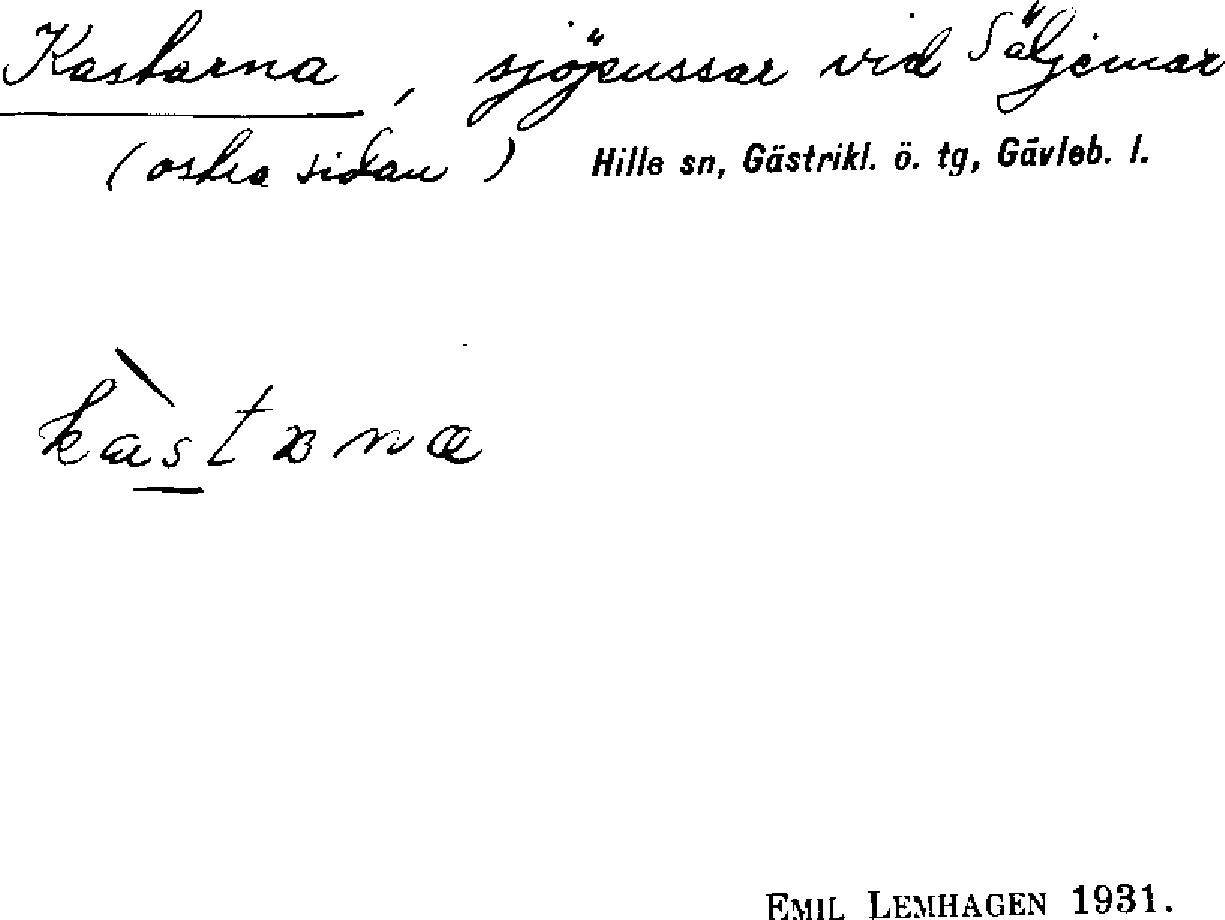 Kastarna, sjöpussar vid Säljemar
(östra sidan) Hille sn, Gästrikl. ö. tg, Gävleb. l.
kàstɐna
EMIL LEMHAGEN 1931.